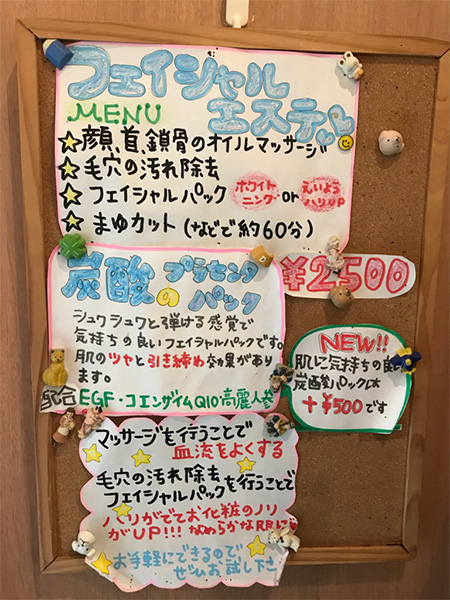 フェイシャル
エステ
MENU
顔、首、鎖骨のオイルマッサージ
毛穴の汚れ除去
フェイシャルパック ホワイトニング or えいようハリUP
まゆカット (などで約60分)
¥2500
炭酸の プラセンタパック
シュワシュワと弾ける感覚で
気持ちの良いフェイシャルパックです。
肌のツヤと引き締め効果があり
ます。
配合 EGF・コエンザイムQ10高麗人参
NEW!!
肌に気持ちの良い
炭酸パックは
+¥500です
マッサージを行うことで
血流をよくする
毛穴の汚れ除去
フェイシャルパックを行うことで
ハリがでてお化粧のノリ
がUP!!! なめらかな肌に
お手軽にできるので
ぜひお試し下さ